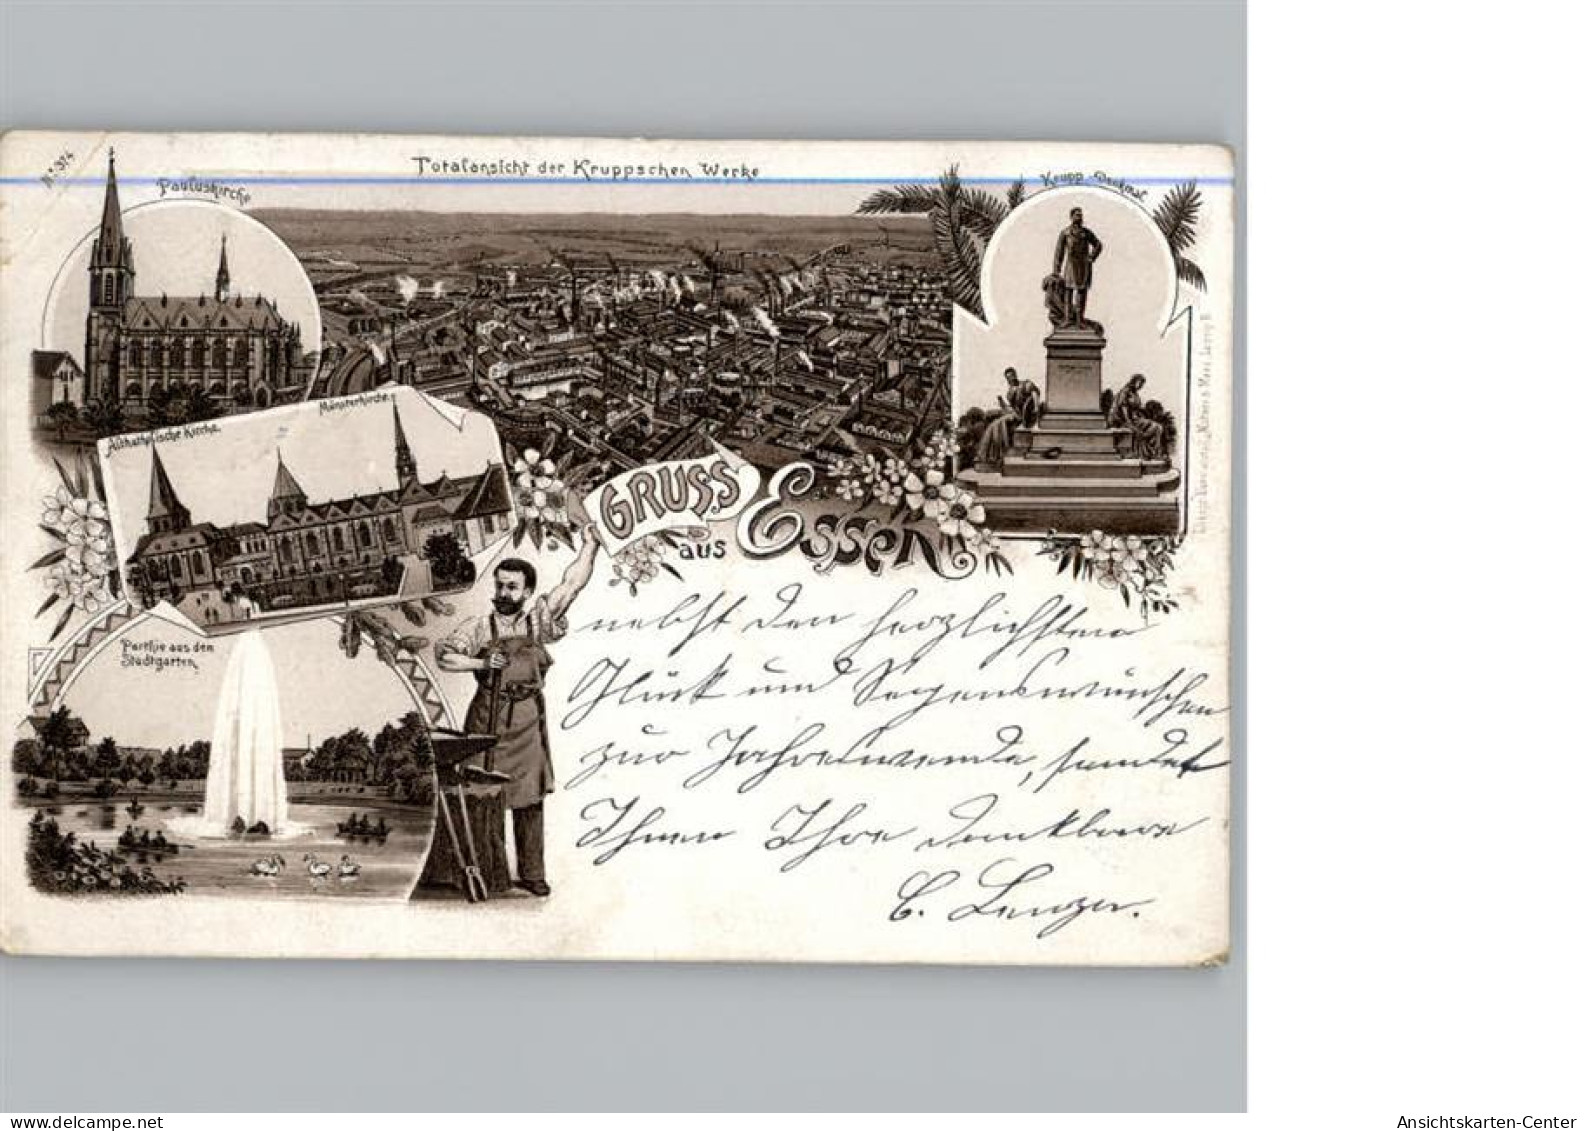 No. 374
Totalansicht der Kruppschen Werke
Pauluskirche
Krupp-Denkmal
Altkatholische Kirche.
Münsterkirche.
GRUSS
aus Essen
Parthie aus dem
Stadtgarten
nebst den herzlichsten
Glück und Segenswünschen
zur Jahreswende, sendet
Ihnen Ihre dankbare
C. Lenzen.
Ansichtskarten-Center